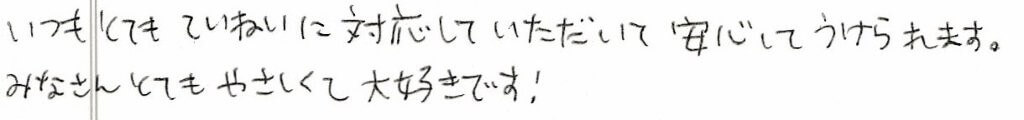 いつもとても ていねいに 対応して いただいて 安心して うけられます。
みなさんとても やさしくて 大好きです!